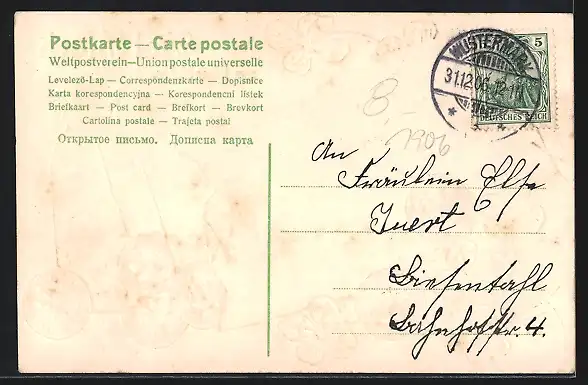 Postkarte — Carte postale
Weltpostverein — Union postale universelle
Levelező-Lap — Correspondenzkarte — Dopisnice
Karta korespondencyjna — Korespondenční lístek
Briefkaart — Post card — Brefkort — Brevkort
Cartolina postale — Trajeta postal
Открытое письмо. Дописна карта
5
DEUTSCHES REICH
31.12.06. 12-1N
8.-
1906
An
Fräulein Else
Biesenthal
Bahnhofstr. 4.